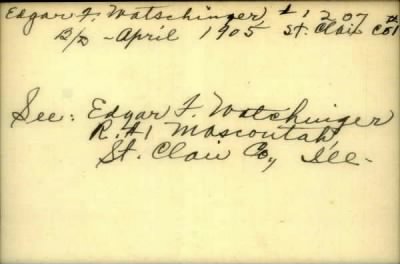 Edgar F. Watschinger, #1207 #
B/D - April 1905, St. Clair Co 1
See: Edgar F. Watchinger
R. #1 Mascoutah,
St. Clair Co, Ill-